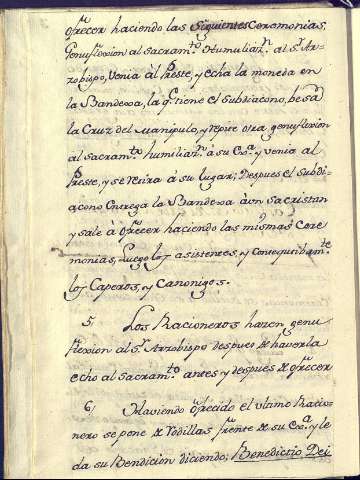 ofrecer haciendo las Siguientes Ceremonias,
Genuflexion al Sacram.to Humuliaz.n al S.r Ar-
zobispo, Venia àl Preste, y echa la moneda en
la Bandexa, la q.e tiene el Subdiacono, besa
la Cruz del Manipulo, y repite otra genuflexion
al Sacram.to humiliaz.n á su Ex.a y venia al
Preste, y se retira á su lugar; Despues el Subdi-
acono Entrega la Bandexa àun Sacristan
y sale à ofrecer haciendo las mismas Cere
monias, Luego los asistentes, y Consequtibam.te
los Caperos, y Canonigos.
5 Los Racioneros hacen genu
flexion al S.r Arzobispo despues de haverla
echo al Sacram.to antes y despues de ofrecer
6 Haviendo ofrecido el ultimo Racio-
nero se pone de Rodillas frente de su Ex.a y le
da su Bendicion diciendo; Benedictio Dei